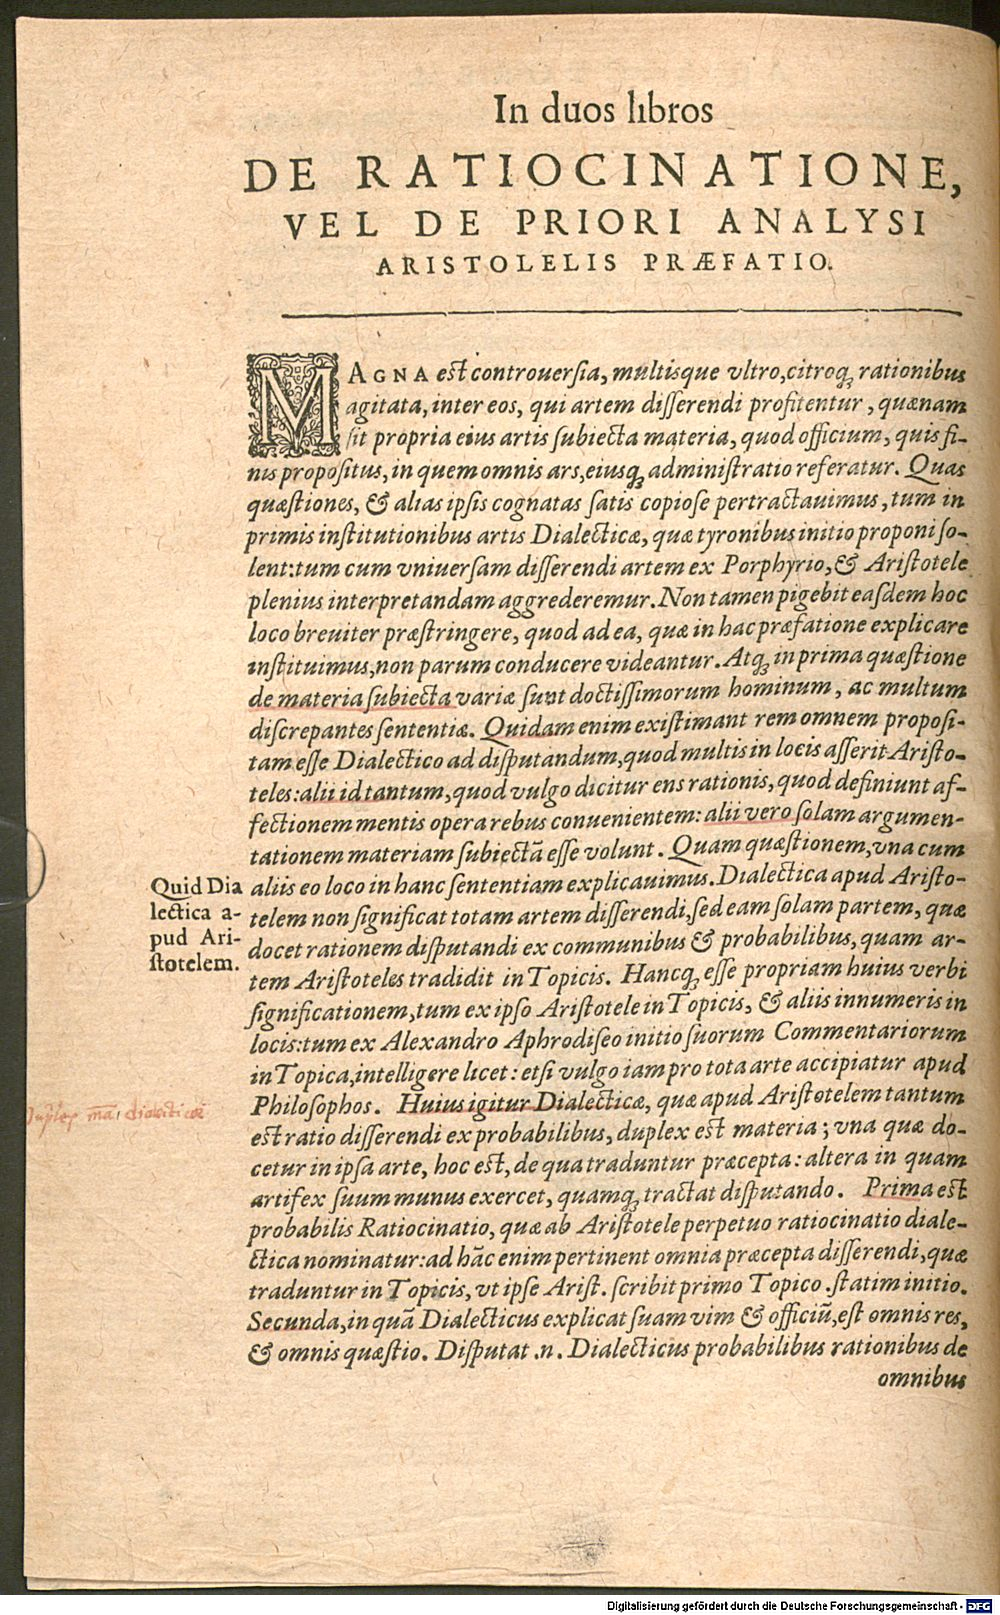 In duos libros
DE RATIOCINATIONE,
VEL DE PRIORI ANALYSI
ARISTOLELIS PRÆFATIO.
MAGNA eſt controuerſia, multisque vltro, citroqꝫ rationibus
agitata, inter eos, qui artem diſſerendi profitentur, quænam
ſit propria eius artis ſubiecta materia, quod officium, quis fi-
nis propoſitus, in quem omnis ars, eiusqꝫ adminiſtratio referatur. Quas
quæſtiones, & alias ipſis cognatas ſatis copioſe pertractauimus, tum in
primis inſtitutionibus artis Dialecticæ, quæ tyronibus initio proponi ſo-
lent: tum cum vniuerſam diſſerendi artem ex Porphyrio, & Ariſtotele
plenius interpretandam aggrederemur. Non tamen pigebit eaſdem hoc
loco breuiter præſtringere, quod ad ea, quæ in hac præfatione explicare
inſtituimus, non parum conducere videantur. Atqꝫ in prima quæſtione
de materia ſubiecta variæ ſunt doctiſſimorum hominum, ac multum
diſcrepantes ſententiæ. Quidam enim exiſtimant rem omnem propoſi-
tam eſſe Dialectico ad diſputandum, quod multis in locis aſſerit Ariſto-
teles: alii id tantum, quod vulgo dicitur ens rationis, quod definiunt af-
fectionem mentis opera rebus conuenientem: alii vero ſolam argumen-
tationem materiam ſubiectã eſſe volunt. Quam quæſtionem, vna cum
aliis eo loco in hanc ſententiam explicauimus. Dialectica apud Ariſto-
telem non ſignificat totam artem diſſerendi, ſed eam ſolam partem, quæ
docet rationem diſputandi ex communibus & probabilibus, quam ar-
tem Ariſtoteles tradidit in Topicis. Hancqꝫ eſſe propriam huius verbi
ſignificationem, tum ex ipſo Ariſtotele in Topicis, & aliis innumeris in
locis: tum ex Alexandro Aphrodiſeo initio ſuorum Commentariorum
in Topica, intelligere licet: etſi vulgo iam pro tota arte accipiatur apud
Philoſophos. Huius igitur Dialecticæ, quæ apud Ariſtotelem tantum
eſt ratio diſſerendi ex probabilibus, duplex eſt materia; vna quæ do-
cetur in ipſa arte, hoc eſt, de qua traduntur præcepta: altera in quam
artifex ſuum munus exercet, quamqꝫ tractat diſputando. Prima eſt
probabilis Ratiocinatio, quæ ab Ariſtotele perpetuo ratiocinatio diale-
ctica nominatur: ad hãc enim pertinent omnia præcepta diſſerendi, quæ
traduntur in Topicis, vt ipſe Ariſt. ſcribit primo Topico. ſtatim initio.
Secunda, in quã Dialecticus explicat ſuam vim & officiũ, eſt omnis res,
& omnis quæſtio. Diſputat .n. Dialecticus probabilibus rationibus de
omnibus
Quid Dia
lectica a-
pud Ari-
ſtotelem.
Duplex mã dialecticæ
Digitalisierung gefördert durch die Deutsche Forschungsgemeinschaft - DFG